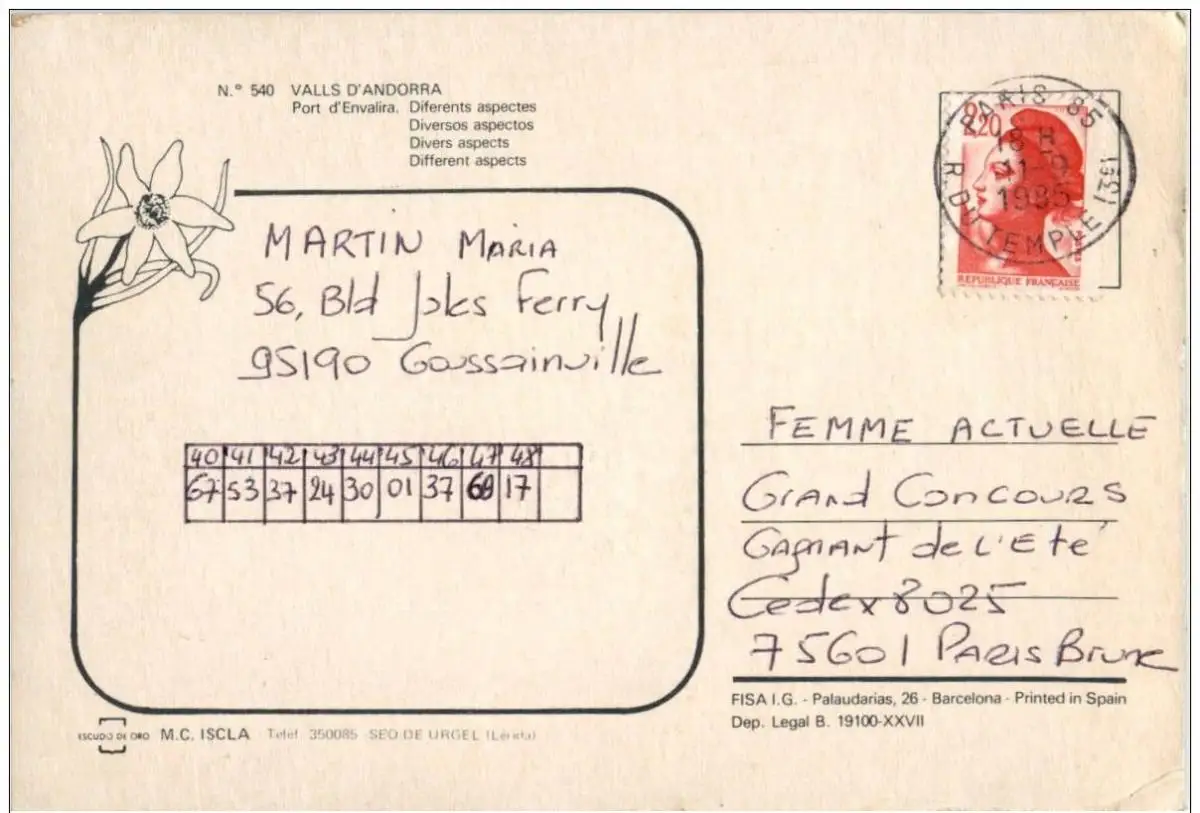 N.° 540 VALLS D'ANDORRA
Port d'Envalira. Diferents aspectes
Diversos aspectos
Divers aspects
Different aspects
2,20
PARIS 85
18 H
11-9
1985
R. DU TEMPLE (3E)
REPUBLIQUE FRANÇAISE
MARTIN MARIA
56, Bld Jules Ferry
95190 Goussainville
40 41 42 43 44 45 46 47 48
67 53 37 24 30 01 37 69 17
FEMME ACTUELLE
GRAND CONCOURS
GAGNANT de L'Eté
Cedex 8025
75601 PARIS BRUNE
FISA I.G. - Palaudarias, 26 - Barcelona - Printed in Spain
Dep. Legal B. 19100-XXVII
ESCUDO DE ORO M.C. ISCLA Telef. 350085 SEO DE URGEL (Lérida)